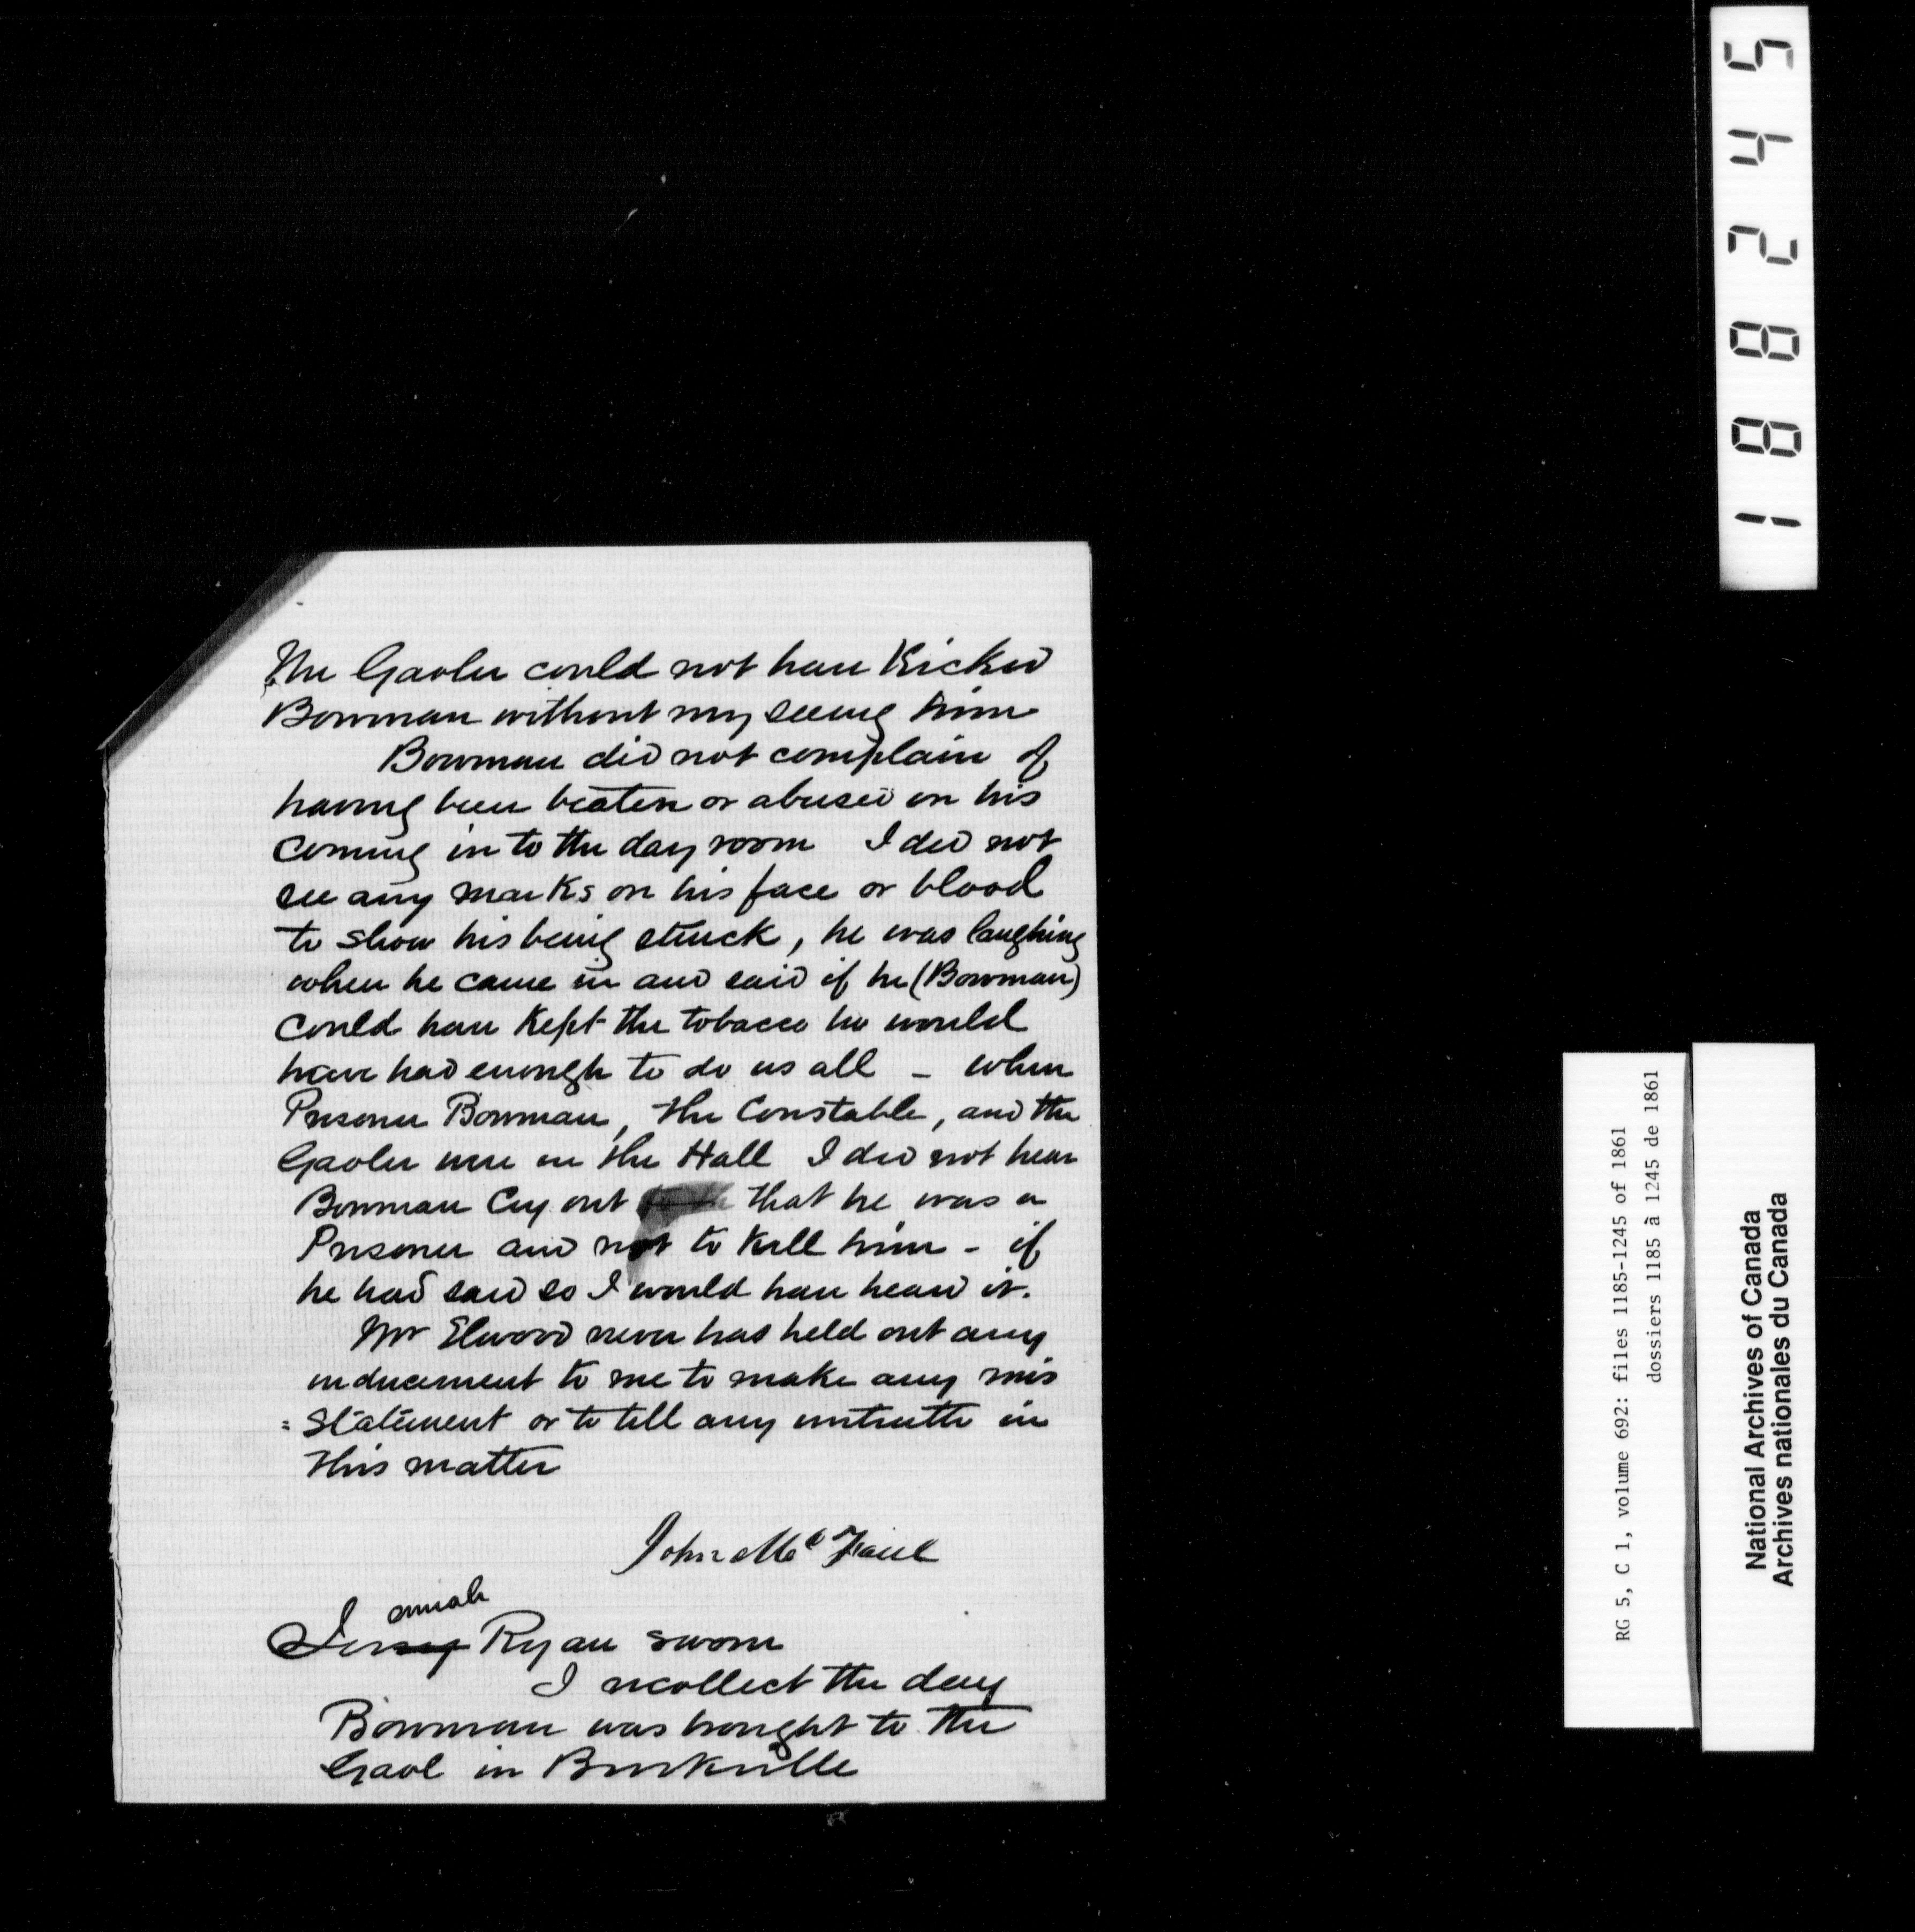 The Gaoler could not have Kicked
Bowman without my seeing him
Bowman did not complain of
having been beaten or abused on his
coming in to the day room I did not
see any marks on his face or blood
to show his being struck, he was laughing
when he came in and said if he (Bowman)
could have Kept the tobacco he would
have had enough to do us all _ when
Prisoner Bowman, the Constable, and the
Gaoler were in the Hall I did not hear
Bowman Cry out that he was a
Prisoner and not to Kill him - if
he had said so I would have heard it.
Mr Elwood never has held out any
inducement to me to make any mis
=statement or to tell any untruth in
this matter
John McFaul
Ryan sworn
I recollect the day
Bowman was brought to the
Gaol in Brockville
188245
RG 5, C 1, volume 692: files 1185-1245 of 1861
dossiers 1185 à 1245 de 1861
National Archives of Canada
Archives nationales du Canada